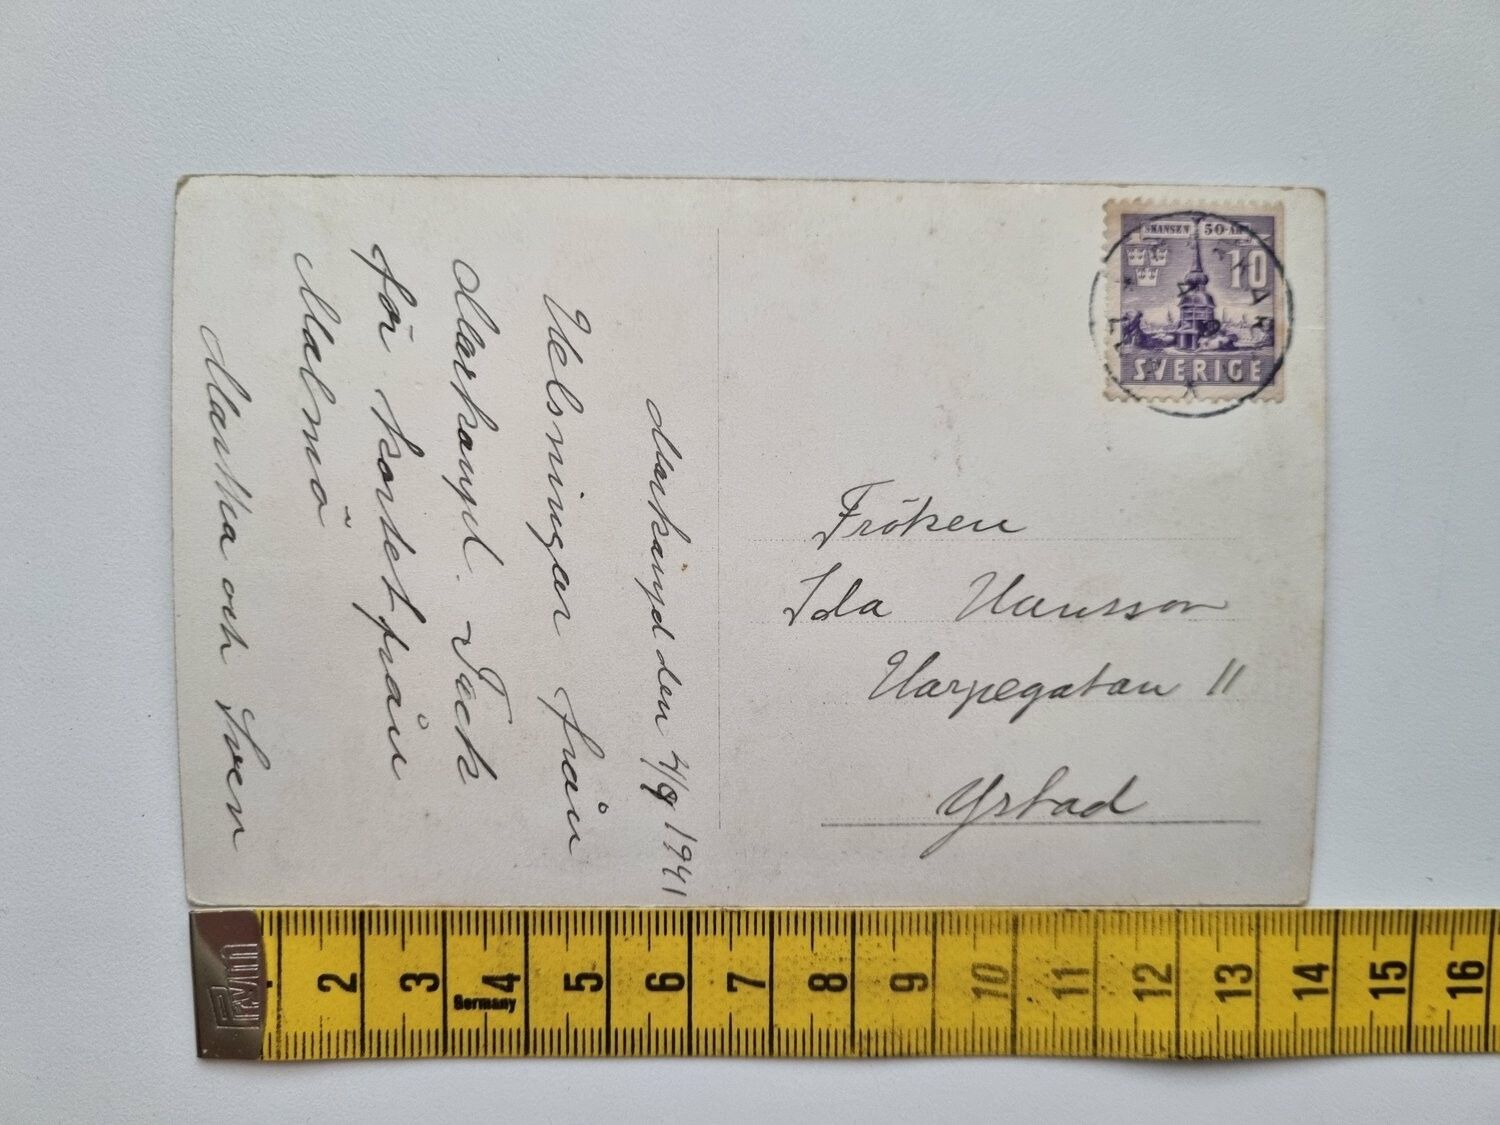 Markaryd den 4/9 1941
Helsningar från
Markaryd. Tack
för kortet från
Malmö
Martha och Sven
SKANSEN 50-ÅR
10
SVERIGE
Fröken
Ida Hansson
Harpegatan 11
Ystad
2 3 4 5 6 7 8 9 10 11 12 13 14 15 16
Germany